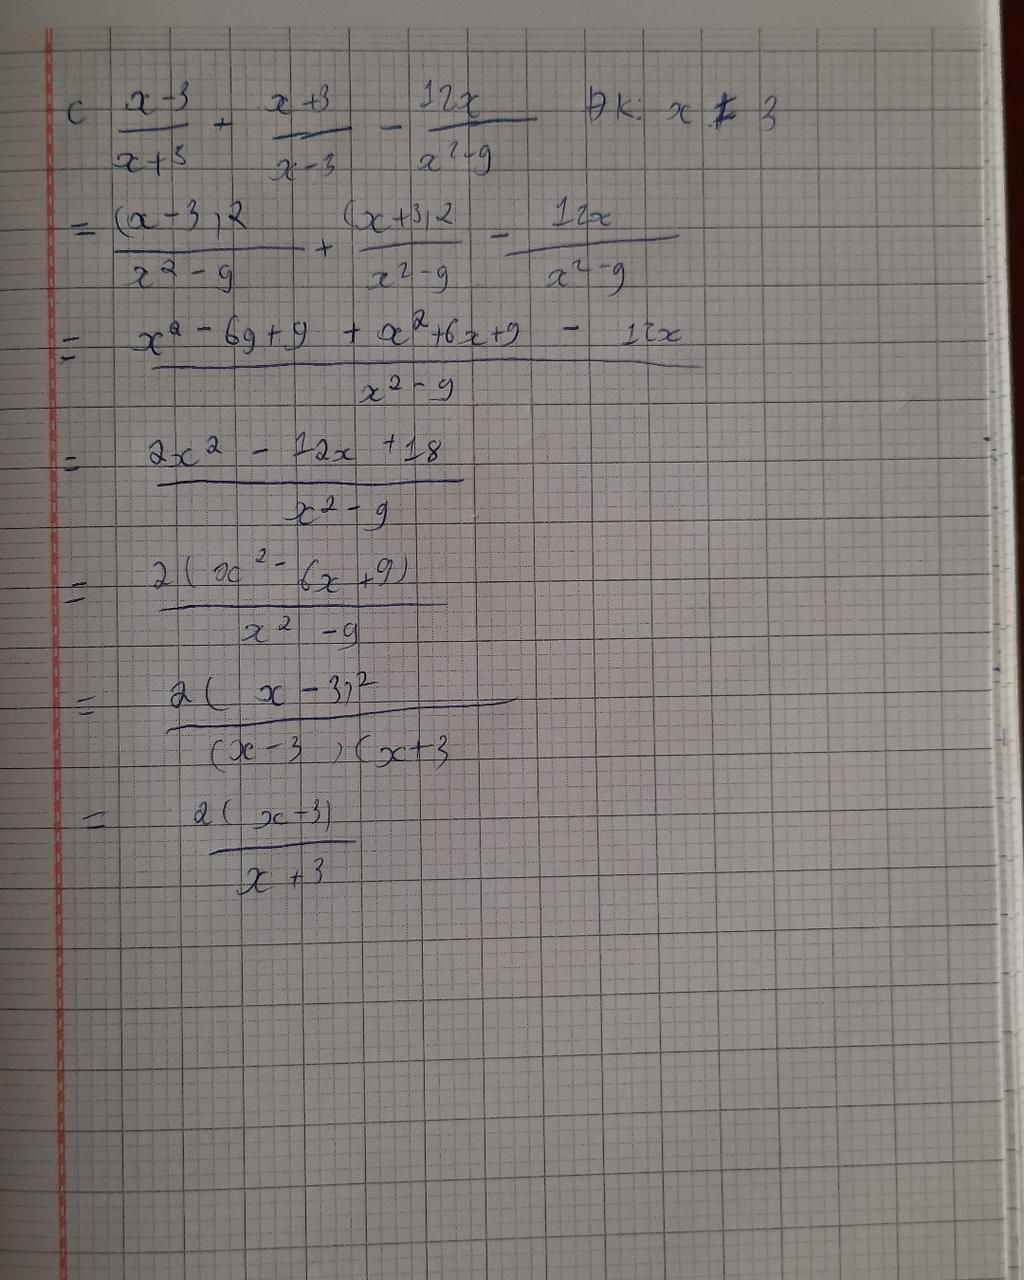 c (x-3)/(x+3) + (x+3)/(x-3) - 12x/(x²-9) ĐK: x ≠ 3
= (x-3)2/(x²-9) + (x+3)2/(x²-9) - 12x/(x²-9)
= (x²-6g+9 + x²+6x+9 - 12x)/(x²-9)
= (2x² - 12x +18)/(x²-9)
= 2(x²-6x+9)/(x²-9)
= 2(x-3)²/(x-3)(x+3
= 2(x-3)/(x+3)